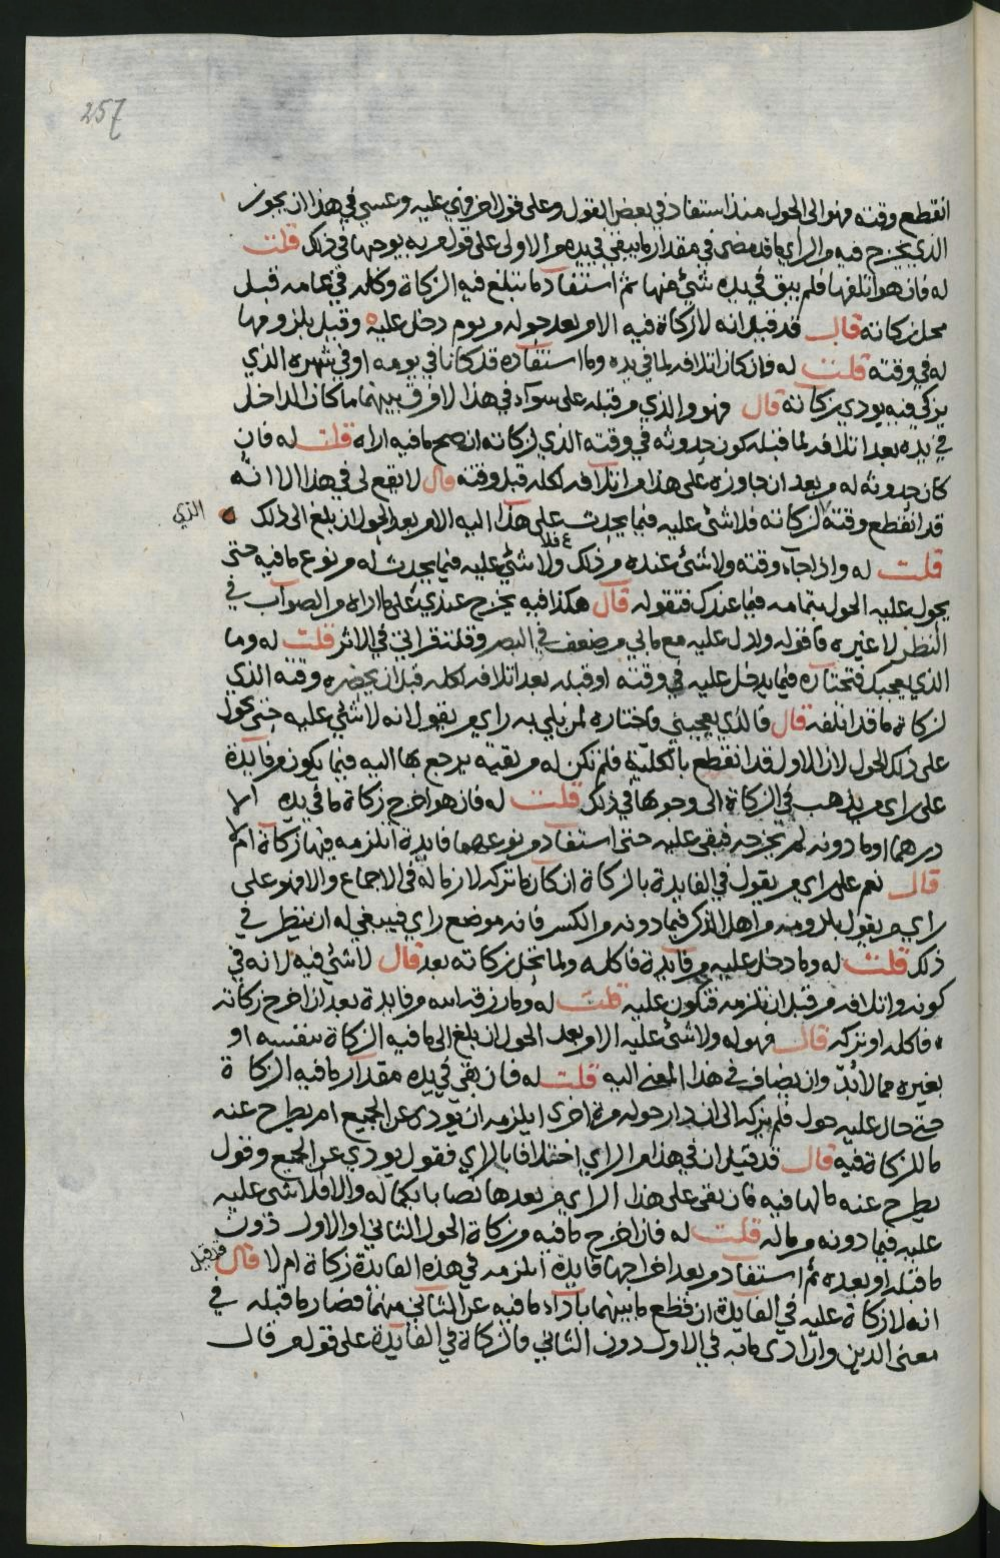 257
انقطع وقته فهو الى الحول منذ استفاد في بعض القول وعلى قول اخر فهي عليه وعسى في هذا ان يجوز
الذي يخرج فيه من الراي ما قد مضى في مقدار ما يبقى في يده من الاولى على قول من به يوجبها في ذلك قلت
له فان هو اتلفها فلم يبق في يده شيئ منها ثم استفاد ما تبلغ فيه الزكاة وكله في عامه قبل
محل زكاته قال قد قيل انه لا زكاة فيه الا من بعد حوله من يوم دخل عليه وقيل بلزومها
له في وقته قلت له فان كان اتلافه لما في يده وما استفاده قد كانا في يومه او في شهره الذي
يزكي فيه يودي زكاته قال فهو والذي من قبله على سوآء في هذا لا فرق بينهما ما كان الداخل
في يده بعد اتلافه لما قبله كون حدوثه في وقته الذي لزكاته ان صح ما فيه اراه قلت له فان
كان حدوثه له من بعد ان جاوزه على هذا من اتلافه لكله قبل وقته قال لا يقع لي في هذا الا انه
قد انقطع وقته لزكاته فلا شئ عليه فيما يحدث على هذا اليه الا من بعد الحول ان بلغ الى ذلك
الذي
قلت له واذا جآء وقته ولا شئ عنده من ذلك فلا شئ عليه فيما يحدث له من نوع ما فيه حتى
يحول عليه الحول بتمامه فيما عندك فتقوله قال هكذا فيه يخرج عندي على ما اراه من الصواب في
النظر لا غيره ما قوله ولا دل عليه مع ما بي من ضعف في البصر وقلة قراتي في الاثر قلت له وما
الذي يعجبك فتختاره فيما يدخل عليه في وقته او قبله بعد اتلافه لكله قبل ان يحضره وقته الذي
لزكاة ما قد اتلفه قال فالذي يعجبني فاختاره لمن بلي به راي من يقول انه لا شئ عليه حتى يحول
على ذلك الحول لان الاول قد انقطع بالكلية فلم تكن له من بقية يرجع بها اليه فيما يكون من فايدة
على راي من يذهب في الزكاة الى وجوبها في ذلك قلت له فان هو اخرج زكاة ما في يده الا
درهما او ما دونه لم يخرجه فبقي عليه حتى استفاد من نوعهما فايدة اتلزمه فيها زكاة ام لا
قال نعم على راي من يقول في الفايدة بالزكاة ان كان ما تركه لازما له في الاجماع والا فهو على
راي من يقول بلزومه من اهل الذكر فيما دونه من الكسر فانه موضع راي فينبغي له ان ينظر في
ذلك قلت له وما دخل عليه من فايدة فاكله ولما تخل زكاته بعد قال لا شئ فيه لانه في
كونه واتلافه من قبل ان تلزمه فتكون عليه قلت له وما رزقه الله من فايدة بعد ان اخرج زكاته
فاكله او تركه قال فهو له ولا شئ عليه الا من بعد الحول ان بلغ الى ما فيه الزكاة بنفسه او
بغيره مما لا بد وان يضاف في هذا المعنى اليه قلت له فان بقي في يده مقدار ما فيه الزكاة
حتى حال عليه حول فلم يزكه الى ان دار حوله مرة اخرى ايلزمه ان يودي عن الجميع ام يطرح عنه
ما للزكاة فيه قال قد قيل ان في هذا من الراي اختلافا بالراي فقول يودي عن الجميع وقول
يطرح عنه ما لها فيه فان بقي على هذا الراي من بعدها نصابا بكماله والا فلا شئ عليه
عليه فيما دونه من ماله قلت له فان اخرج ما فيه من زكاة الحول الثاني او الاول دون
ما قبله او بعده ثم استفاد من بعد اخراجها فايدة المزمه في هذه الفايدة زكاة ام لا قال
قد قيل
انه لا زكاة عليه في الفايدة ان قطع ما بينهما بادآء ما فيه عن الثاني منهما فصار ما قبله في
معنى الدين وان ادى ما به في الاول دون الثاني فالزكاة في الفايدة على قول من قال